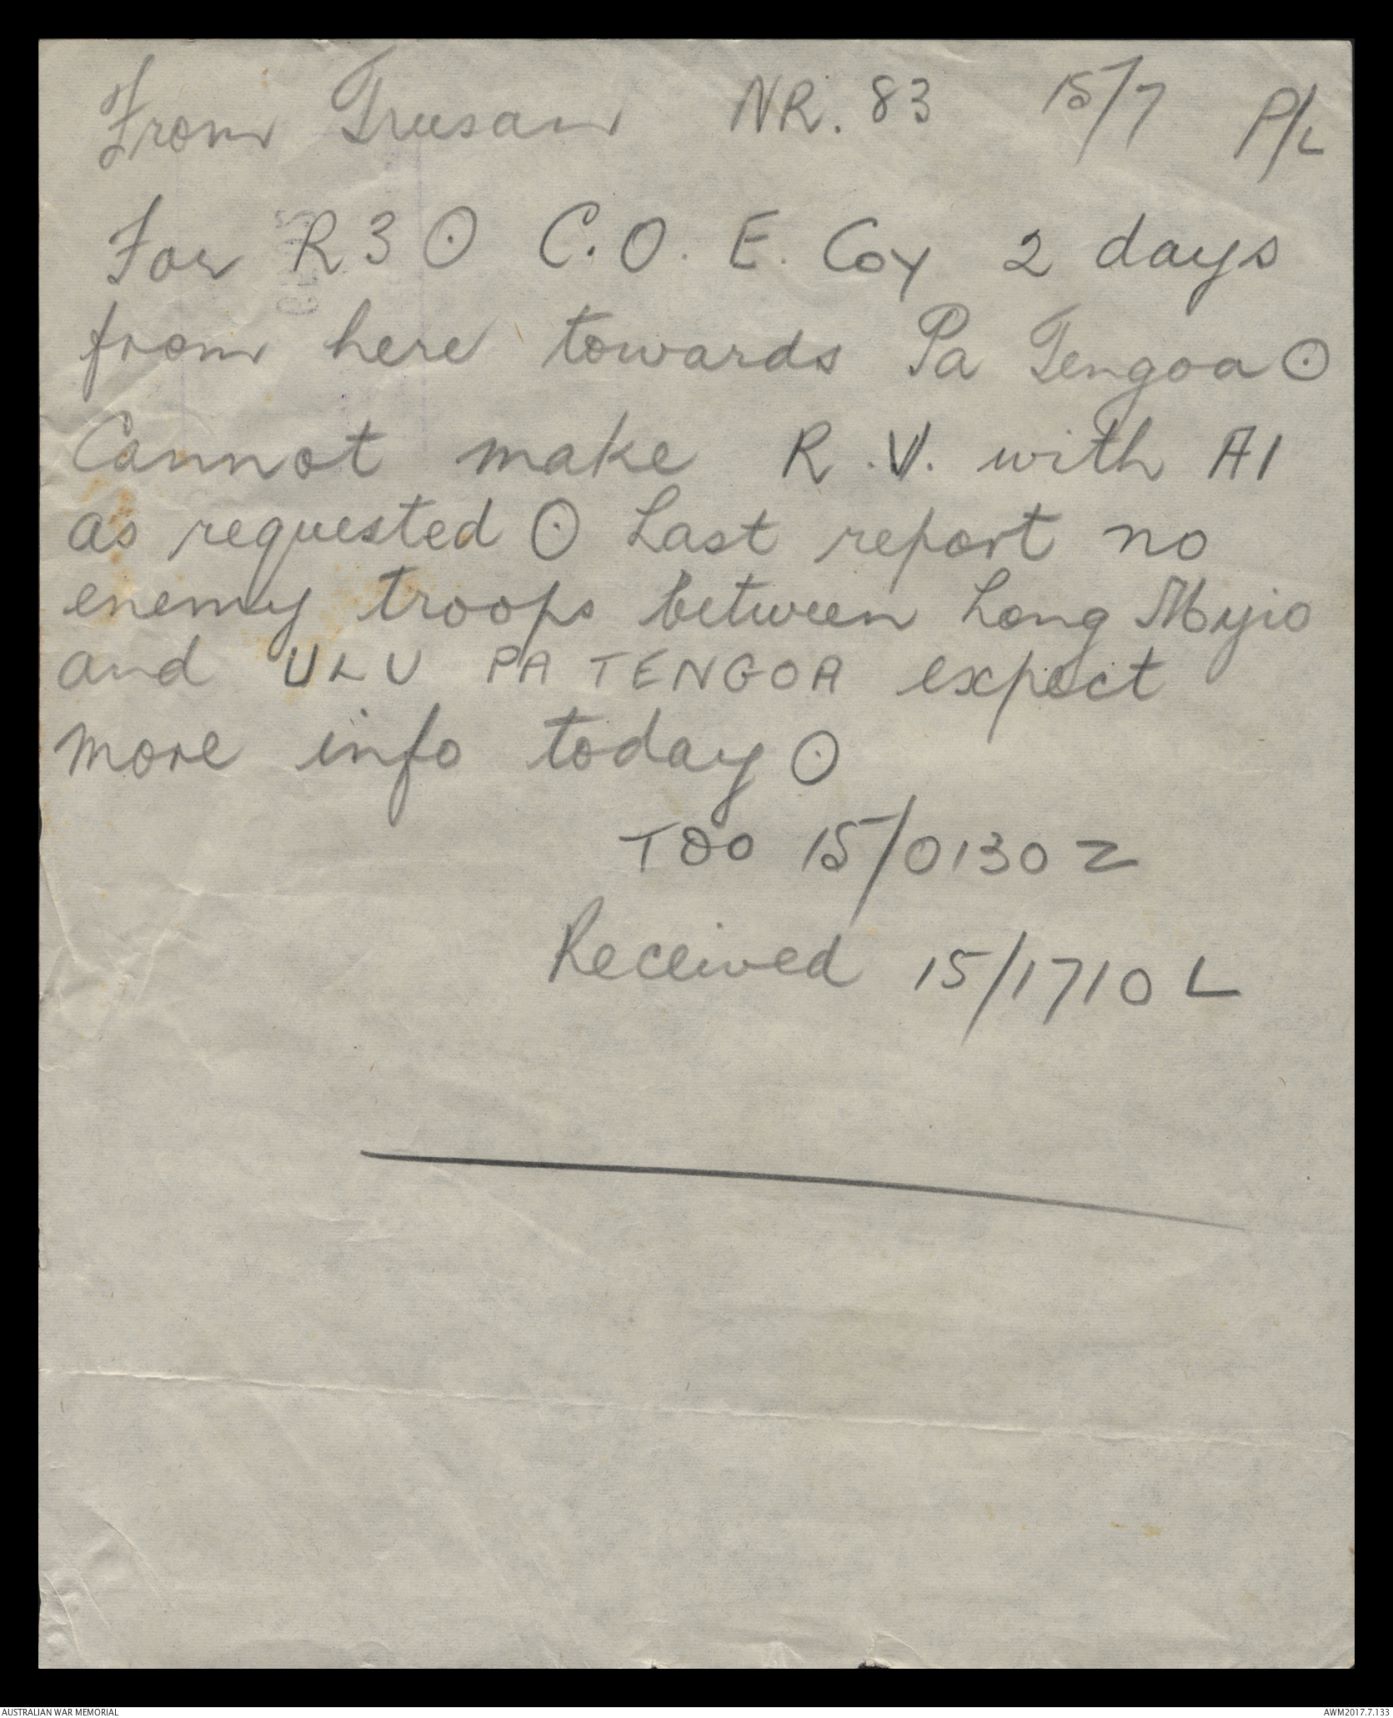 From Trusan NR. 83 15/7 P/L
For R3 ⊙ C.O. E. Coy 2 days
from here towards Pa Tengoa ⊙
Cannot make R.V. with A1
as requested ⊙ Last report no
enemy troops between Long Myio
and ULU PA TENGOA expect
more info today ⊙
TOO 15/0130 Z
Received 15/1710 L
AUSTRALIAN WAR MEMORIAL
AWM2017.7.133